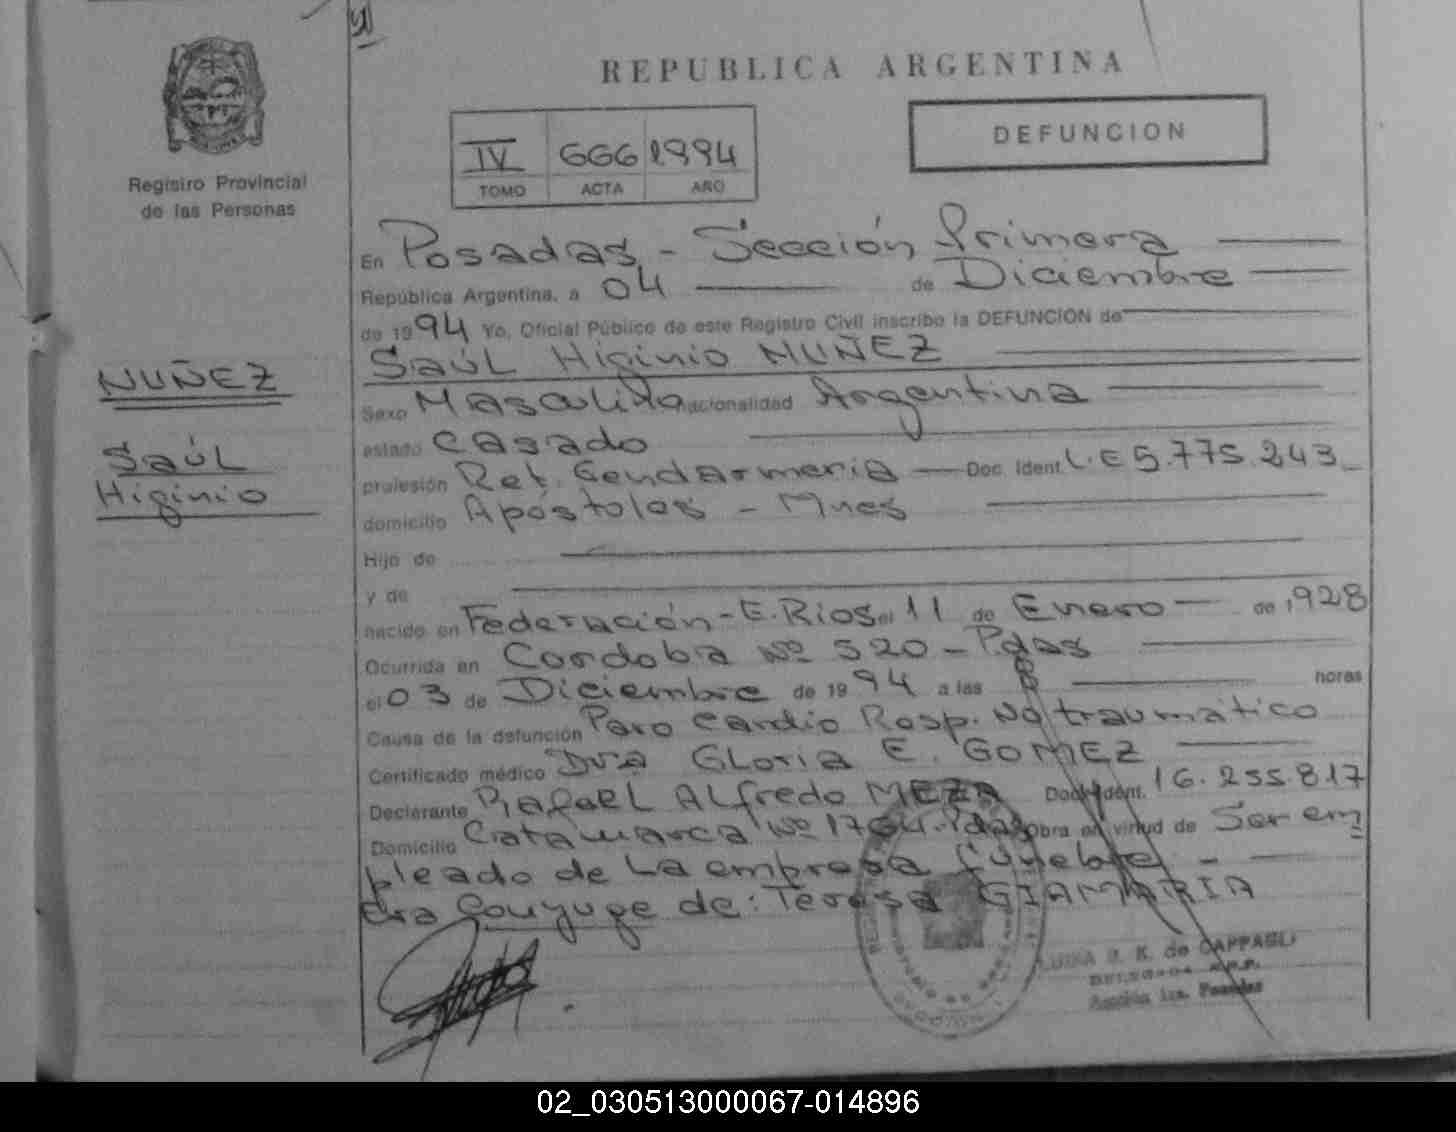 REPUBLICA ARGENTINA
DEFUNCION
IV 666 1994
TOMO ACTA AÑO
Registro Provincial
de las Personas
NUÑEZ
Saúl
Higinio
En Posadas - Sección Primera
República Argentina, a 04 de Diciembre
de 1994 Yo, Oficial Público de este Registro Civil inscribo la DEFUNCION de
Saúl Higinio NUÑEZ
Sexo Masculino nacionalidad Argentina
estado casado
profesión Ret. Gendarmeria Doc. Ident. L.E 5.775.243
domicilio Apóstoles - Mnes
Hijo de
y de
nacido en Federación - E. Rios el 11 de Enero de 1928
Ocurrida en Cordoba Nº 520 - Pdas
el 03 de Diciembre de 1994 a las 8 horas
Causa de la defunción Paro cardio Resp. No traumático
Certificado médico Dra Gloria E. GOMEZ
Declarante Rafael Alfredo MEZA Doc. Ident. 16.255.817
Domicilio Catamarca Nº 1764 - Pdas Obra en virtud de Ser em
pleado de la empresa fúnebre. -
Era Conyuge de: Teresa GIAMARIA
LUISA R. K. de CAPPAGLI
Sección 1ra. Posadas
02_030513000067-014896